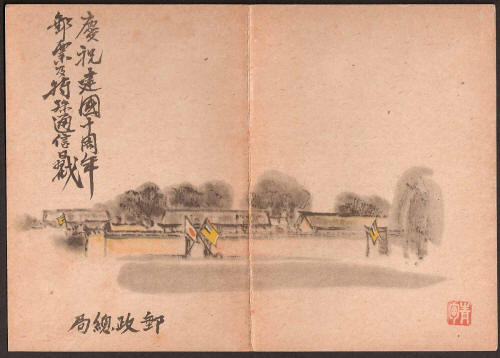 慶祝建國十周年
郵票及特殊通信日戳
郵政總局